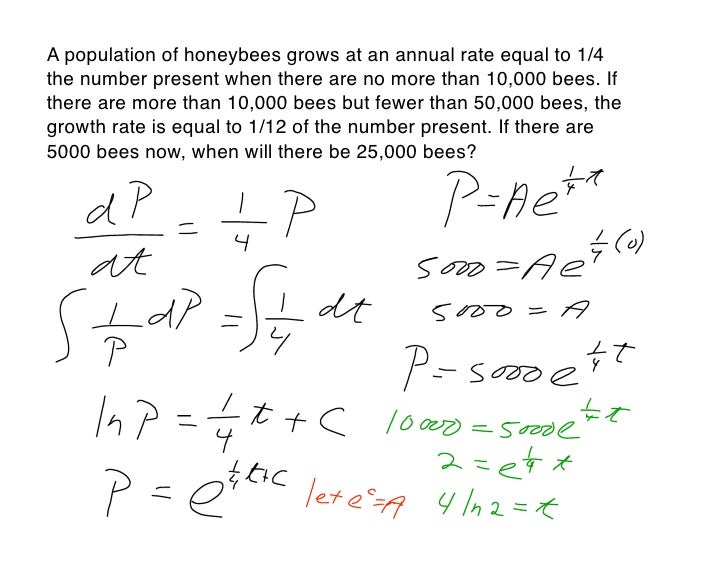 A population of honeybees grows at an annual rate equal to 1/4
the number present when there are no more than 10,000 bees. If
there are more than 10,000 bees but fewer than 50,000 bees, the
growth rate is equal to 1/12 of the number present. If there are
5000 bees now, when will there be 25,000 bees?
dP/dt = 1/4 P
∫ 1/P dP = ∫ 1/4 dt
ln P = 1/4 t + C
P = e^(1/4 t+C)
let e^c = A
P = Ae^(1/4 t)
5000 = Ae^(1/4 (0))
5000 = A
P = 5000e^(1/4 t)
10000 = 5000e^(1/4 t)
2 = e^(1/4 t)
4 ln 2 = t